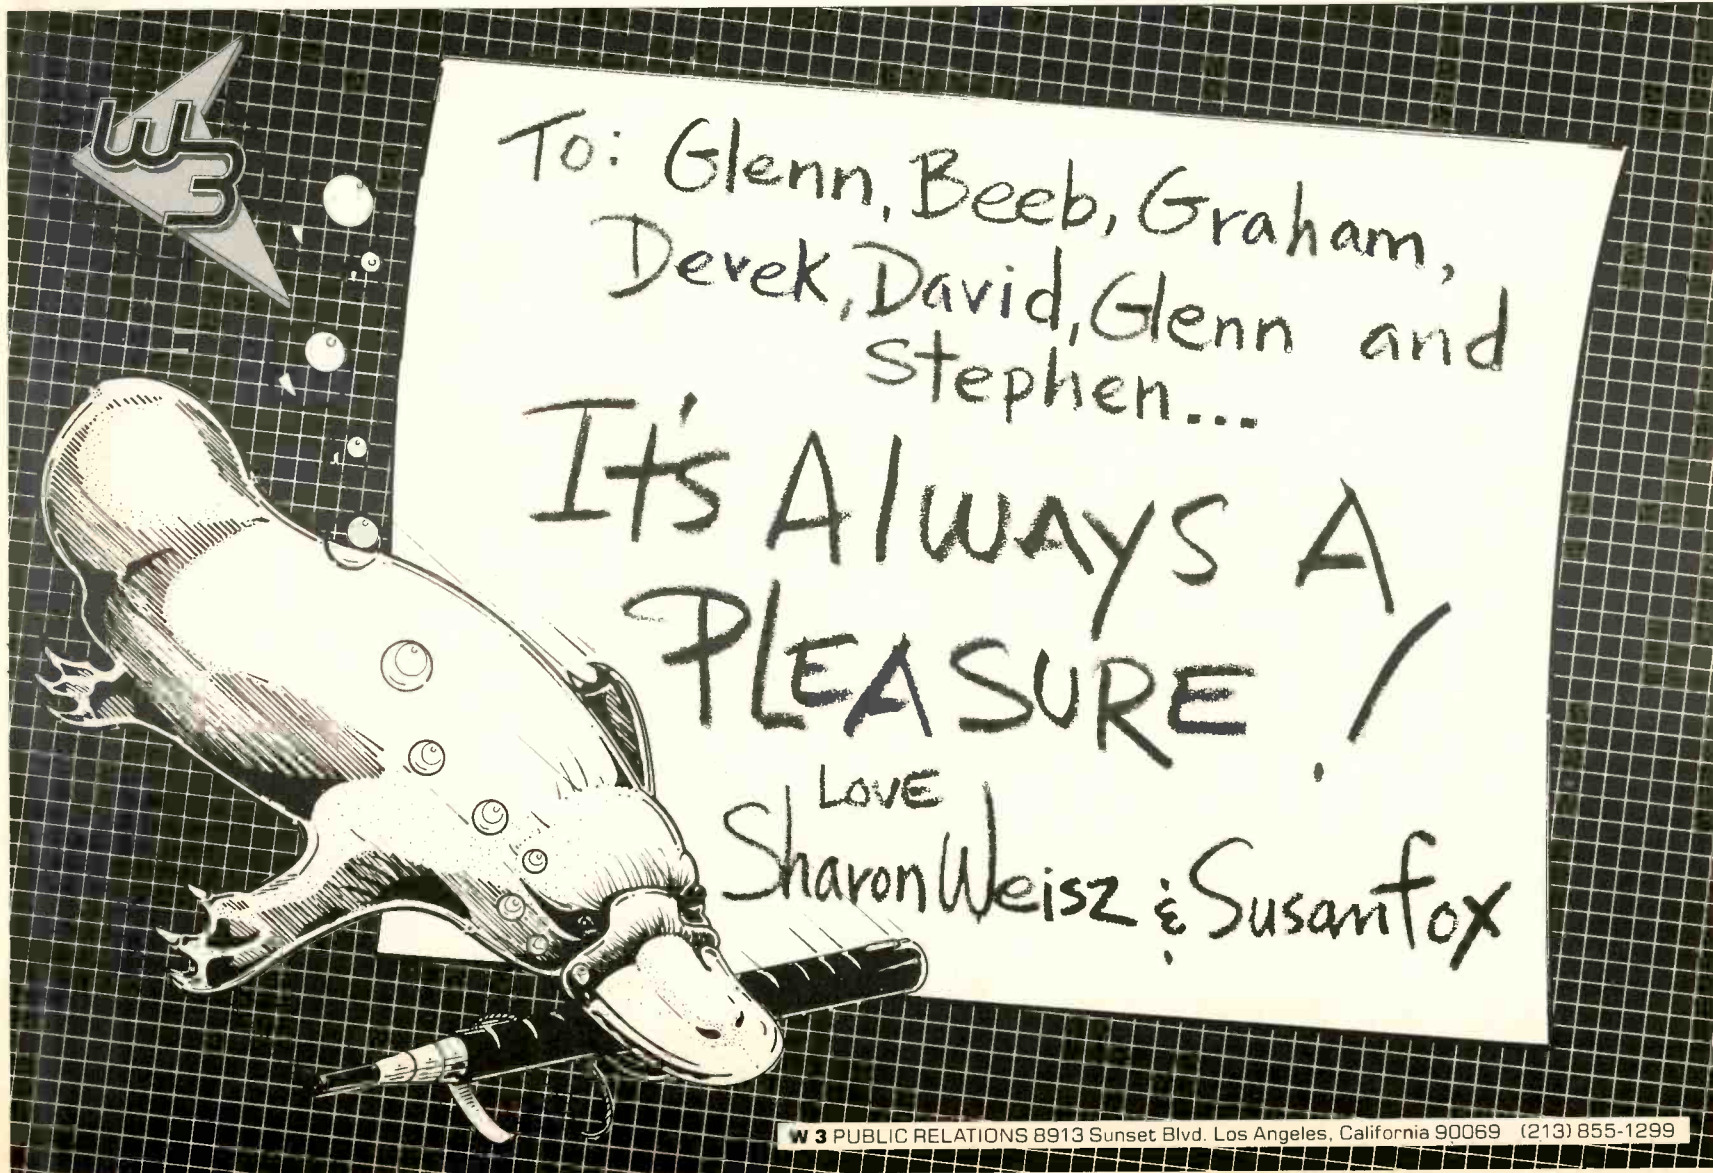 W3
To: Glenn, Beeb, Graham,
Derek, David, Glenn and
Stephen...
It's Always A
PLEASURE!
LOVE
Sharon Weisz & Susan Fox
W 3 PUBLIC RELATIONS 8913 Sunset Blvd. Los Angeles, California 90069 (213) 855-1299